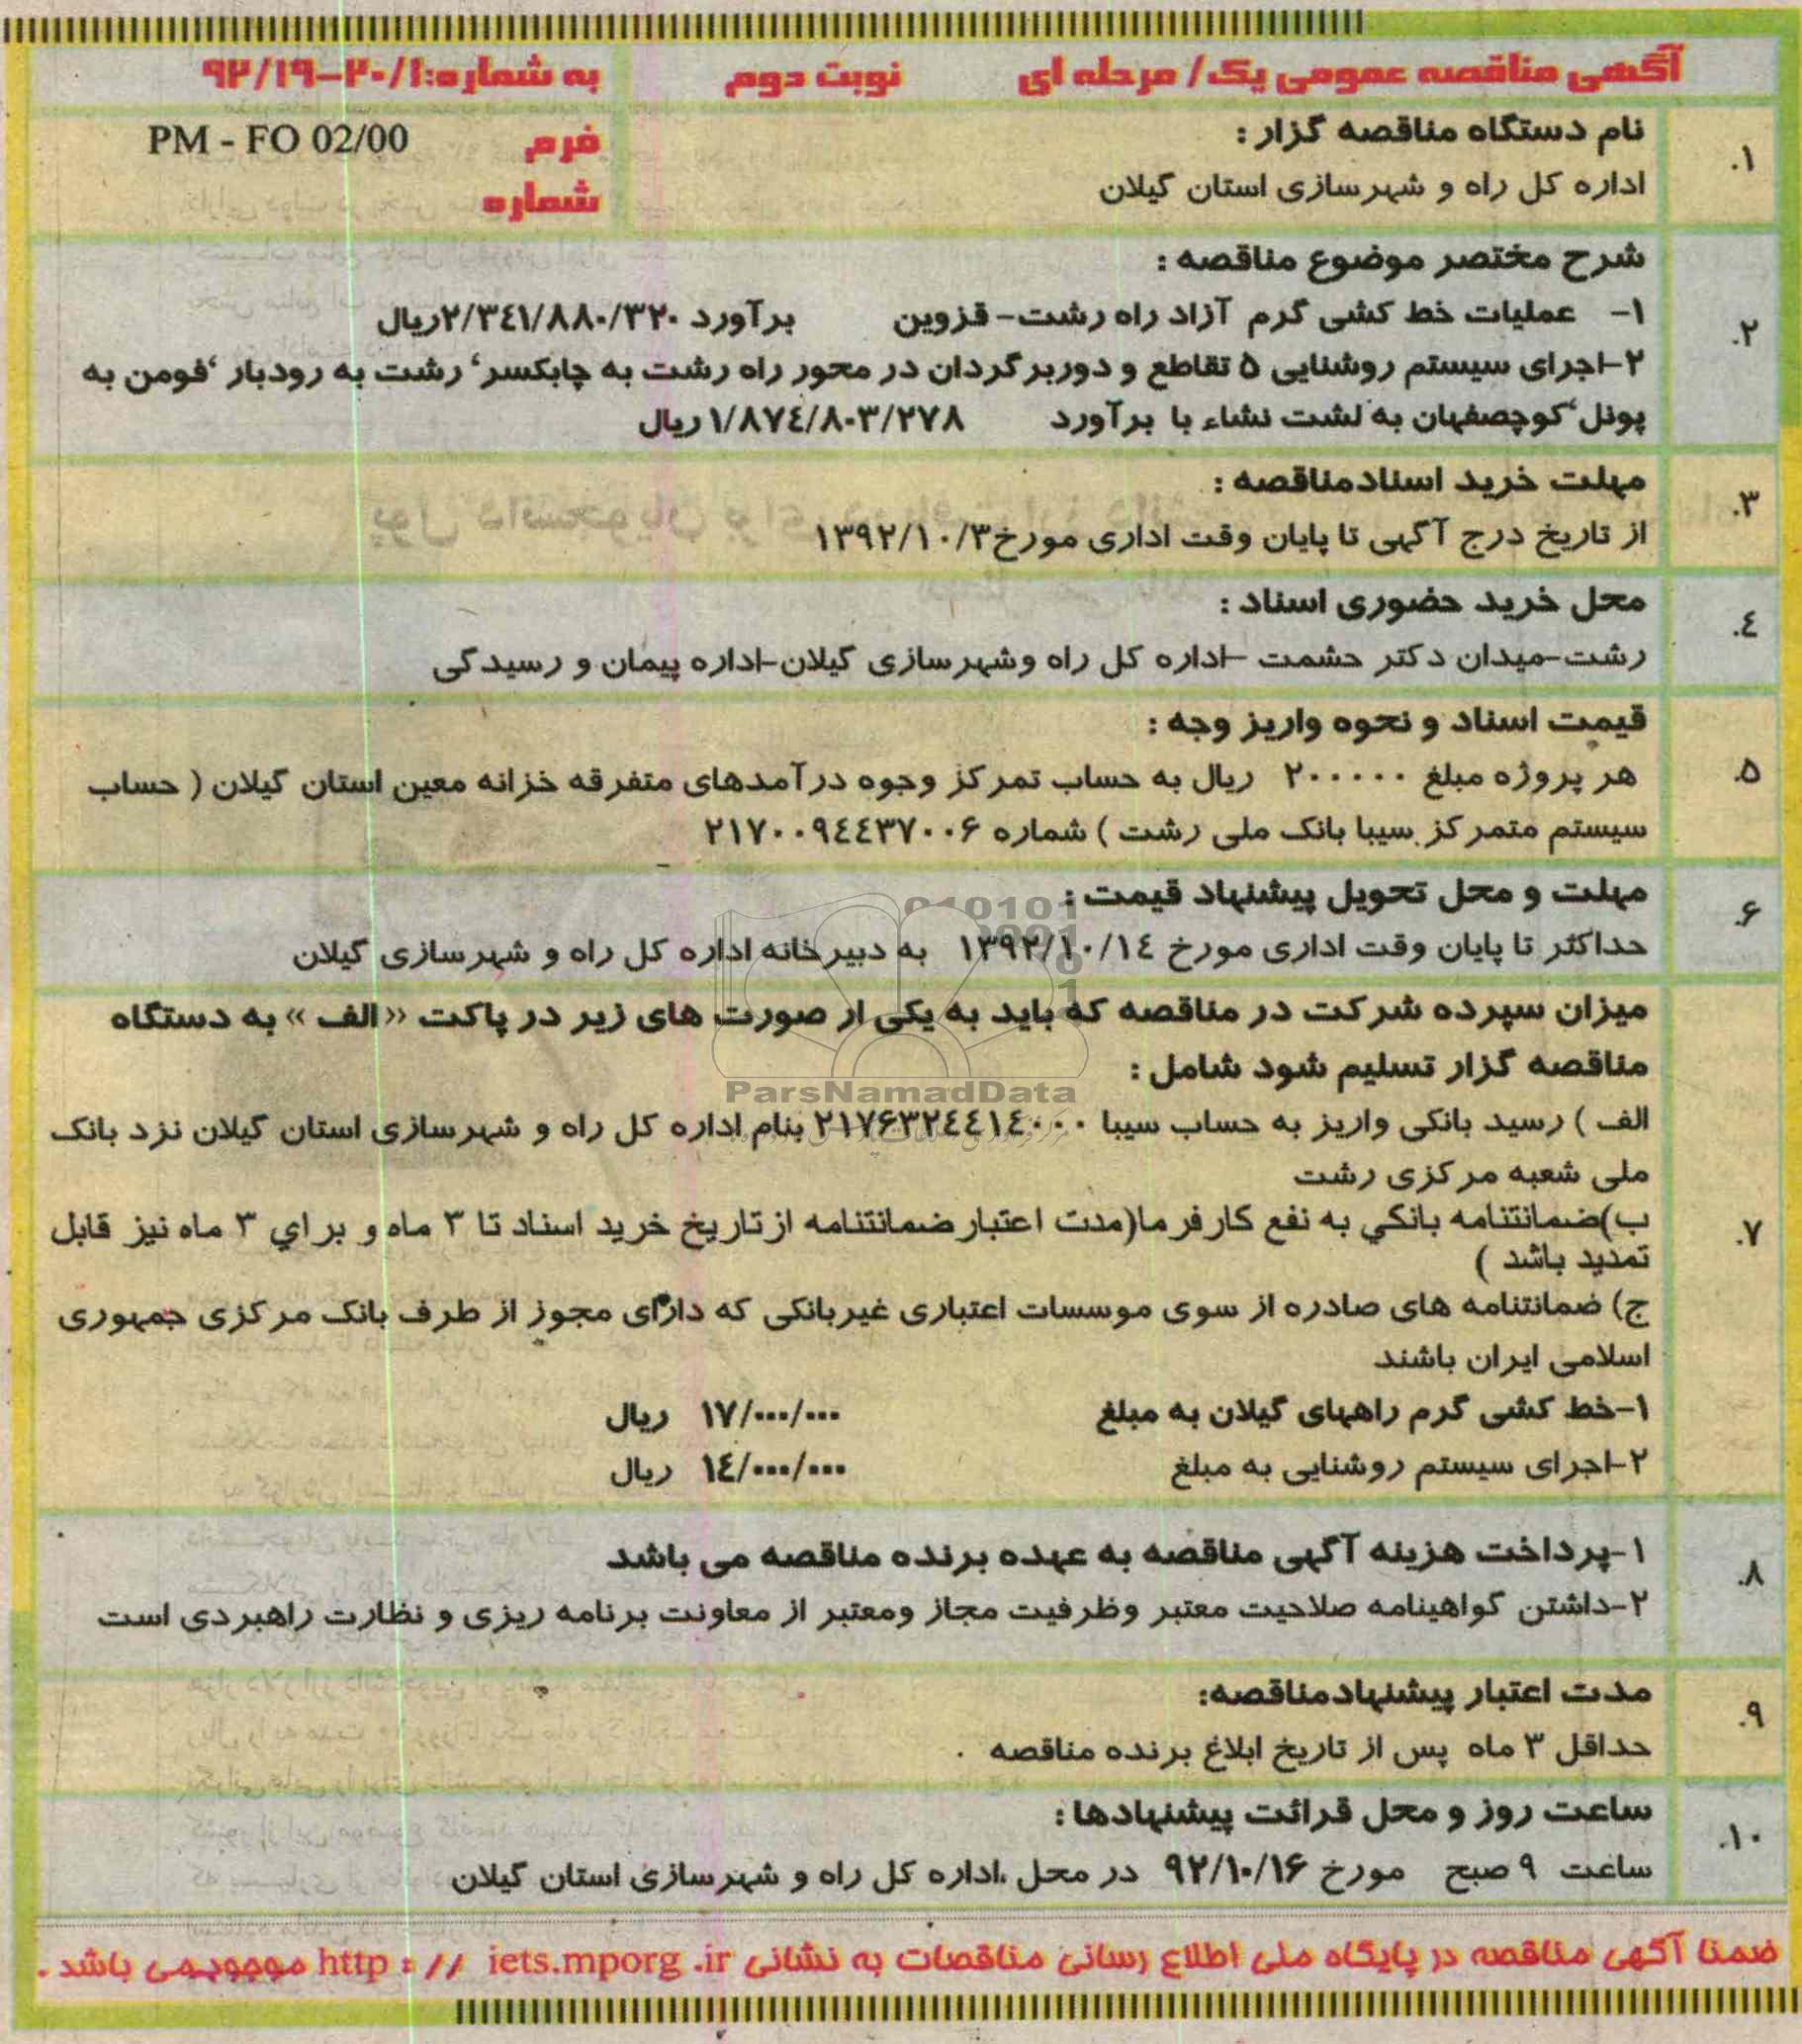 آگهی مناقصه عمومی یک/ مرحله ای نوبت دوم به شماره:۹۲/۱۹-۲۰/۱
۱. نام دستگاه مناقصه گزار :
اداره کل راه و شهرسازی استان گیلان
فرم PM - FO 02/00
شماره
۲. شرح مختصر موضوع مناقصه :
۱- عملیات خط کشی گرم آزاد راه رشت- قزوین برآورد ۲/۳۴۱/۸۸۰/۳۲۰ریال
۲-اجرای سیستم روشنایی ۵ تقاطع و دوربرگردان در محور راه رشت به چابکسر‘ رشت به رودبار ‘فومن به
پونل‘کوچصفهان به لشت نشاء با برآورد ۱/۸۷۴/۸۰۳/۲۷۸ ریال
۳. مهلت خرید اسنادمناقصه :
از تاریخ درج آگهی تا پایان وقت اداری مورخ۱۳۹۲/۱۰/۳
۴. محل خرید حضوری اسناد :
رشت-میدان دکتر حشمت -اداره کل راه وشهرسازی گیلان-اداره پیمان و رسیدگی
۵. قیمت اسناد و نحوه واریز وجه :
هر پروژه مبلغ ۲۰۰۰۰۰ ریال به حساب تمرکز وجوه درآمدهای متفرقه خزانه معین استان گیلان ( حساب
سیستم متمرکز سیبا بانک ملی رشت ) شماره ۲۱۷۰۰۹۴۴۳۷۰۰۶
۶. مهلت و محل تحویل پیشنهاد قیمت :
حداکثر تا پایان وقت اداری مورخ ۱۳۹۲/۱۰/۱۴ به دبیرخانه اداره کل راه و شهرسازی گیلان
۷. میزان سپرده شرکت در مناقصه که باید به یکی از صورت های زیر در پاکت «الف » به دستگاه
مناقصه گزار تسلیم شود شامل :
ParsNamadData
الف ) رسید بانکی واریز به حساب سیبا ۲۱۷۶۳۲۴۴۱۴۰۰۰ بنام اداره کل راه و شهرسازی استان گیلان نزد بانک
ملی شعبه مرکزی رشت
ب)ضمانتنامه بانکي به نفع کارفرما(مدت اعتبارضمانتنامه ازتاریخ خرید اسناد تا ۳ ماه و براي ۳ ماه نیز قابل
تمدید باشد )
ج) ضمانتنامه های صادره از سوی موسسات اعتباری غیربانکی که دارای مجوز از طرف بانک مرکزی جمهوری
اسلامی ایران باشند
۱-خط کشی گرم راههای گیلان به مبلغ ۱۷/۰۰۰/۰۰۰ ریال
۲-اجرای سیستم روشنایی به مبلغ ۱۴/۰۰۰/۰۰۰ ریال
۸. ۱-پرداخت هزینه آگهی مناقصه به عهده برنده مناقصه می باشد
۲-داشتن گواهینامه صلاحیت معتبر وظرفیت مجاز ومعتبر از معاونت برنامه ریزی و نظارت راهبردی است
۹. مدت اعتبار پیشنهادمناقصه:
حداقل ۳ ماه پس از تاریخ ابلاغ برنده مناقصه .
۱۰. ساعت روز و محل قرائت پیشنهادها :
ساعت ۹ صبح مورخ ۹۲/۱۰/۱۶ در محل اداره کل راه و شهرسازی استان گیلان
ضمنا آگهی مناقصه در پایگاه ملی اطلاع رسانی مناقصات به نشانی http : // iets.mporg .ir موجودمی باشد .